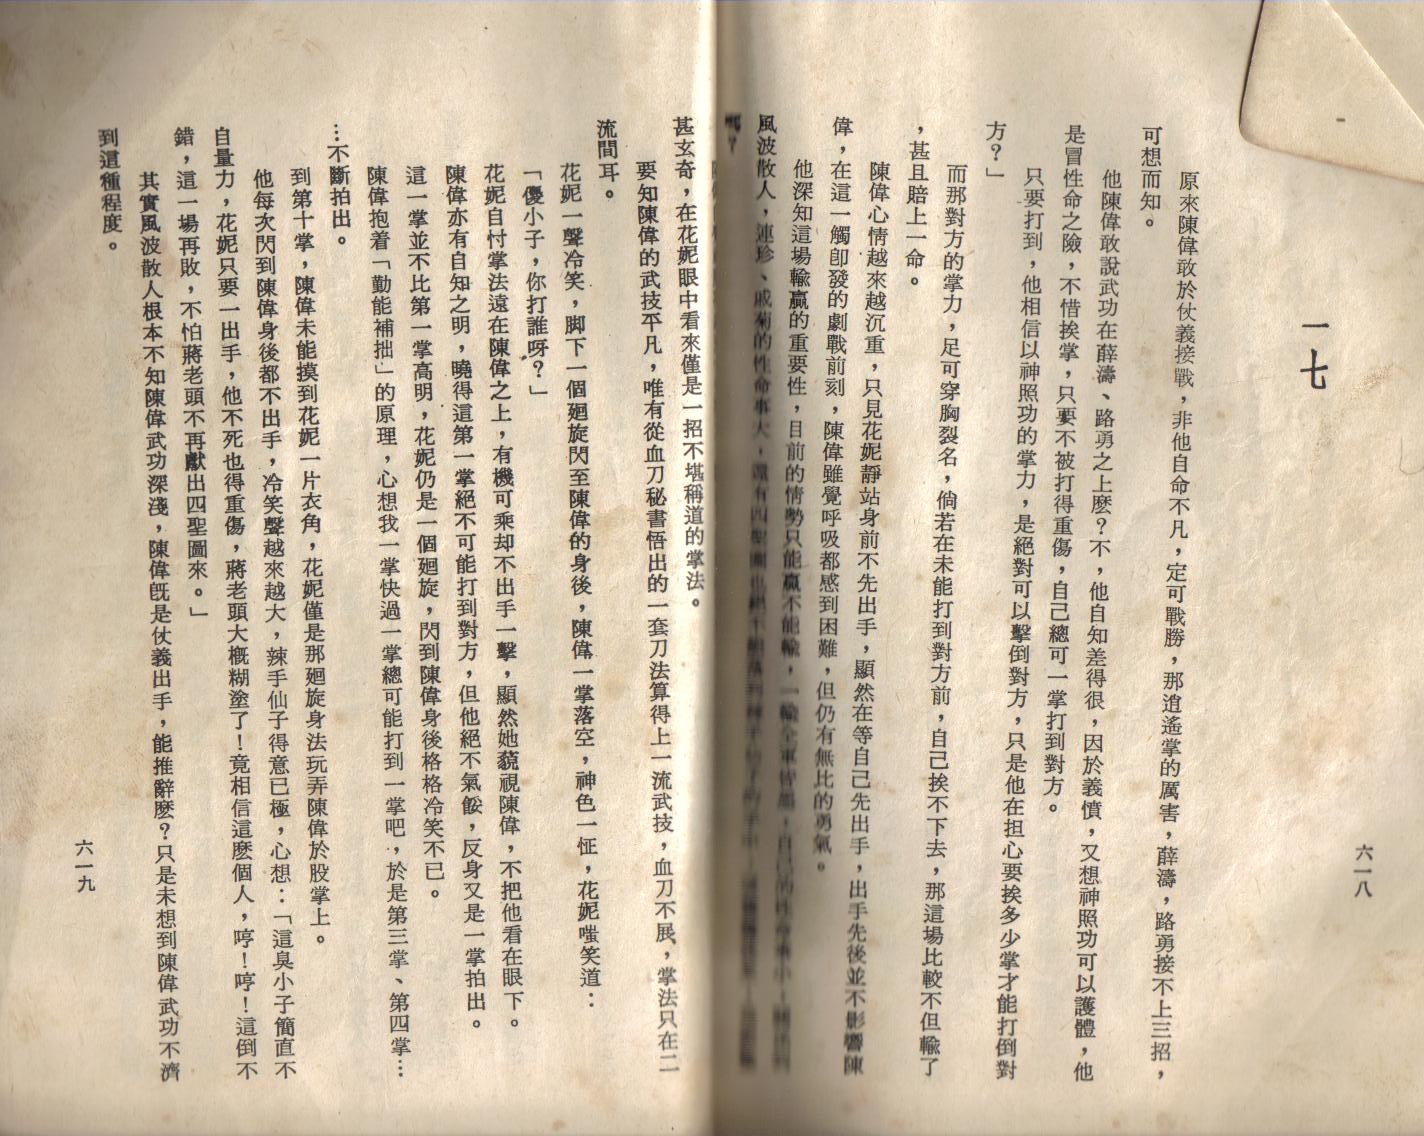 一七
原來陳偉敢於仗義接戰，非他自命不凡，定可戰勝，那逍遙掌的厲害，薛濤，路勇接不上三招，
可想而知。
他陳偉敢說武功在薛濤、路勇之上麽？不，他自知差得很，因於義憤，又想神照功可以護體，他
是冒性命之險，不惜挨掌，只要不被打得重傷，自己總可一掌打到對方。
只要打到，他相信以神照功的掌力，是絕對可以擊倒對方，只是他在担心要挨多少掌才能打倒對
方？」
而那對方的掌力，足可穿胸裂名，倘若在未能打到對方前，自己挨不下去，那這場比較不但輸了
，甚且賠上一命。
陳偉心情越來越沉重，只見花妮靜站身前不先出手，顯然在等自己先出手，出手先後並不影響陳
偉，在這一觸卽發的劇戰前刻，陳偉雖覺呼吸都感到困難，但仍有無比的勇氣。
他深知這場輸贏的重要性，目前的情勢只能贏不能輸，一輸全軍皆墨，自己的性命事小，
風波散人，連珍、戚菊的性命事大，還有四聖圖也
六一八
要知陳偉的武技平凡，唯有從血刀秘書悟出的一套刀法算得上一流武技，血刀不展，掌法只在二
甚玄奇，在花妮眼中看來僅是一招不堪稱道的掌法。
流間耳。
花妮一聲冷笑，脚下一個廻旋閃至陳偉的身後，陳偉一掌落空，神色一怔，花妮嗤笑道：
「傻小子，你打誰呀？」
花妮自忖掌法遠在陳偉之上，有機可乘却不出手一擊，顯然她藐視陳偉，不把他看在眼下。
陳偉亦有自知之明，曉得這第一掌絕不可能打到對方，但他絕不氣餒，反身又是一掌拍出。
這一掌並不比第一掌高明，花妮仍是一個廻旋，閃到陳偉身後格格冷笑不已。
陳偉抱着「勤能補拙」的原理，心想我一掌快過一掌總可能打到一掌吧，於是第三掌、第四掌…
…不斷拍出。
到第十掌，陳偉未能摸到花妮一片衣角，花妮僅是那廻旋身法玩弄陳偉於股掌上。
他每次閃到陳偉身後都不出手，冷笑聲越來越大，辣手仙子得意已極，心想：「這臭小子簡直不
自量力，花妮只要一出手，他不死也得重傷，蔣老頭大概糊塗了！竟相信這麽個人，哼！哼！這倒不
錯，這一場再敗，不怕蔣老頭不再獻出四聖圖來。」
其實風波散人根本不知陳偉武功深淺，陳偉旣是仗義出手，能推辭麽？只是未想到陳偉武功不濟
到這種程度。
六一九